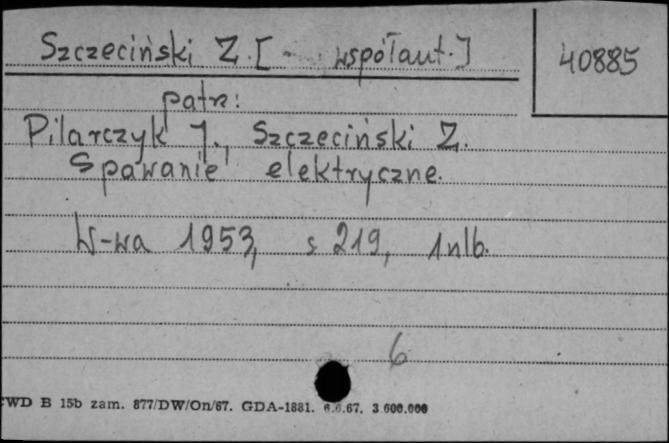 Szczeciński Z. [ - współaut.]
40885
patrz:
Pilarczyk J., Szczeciński Z.
Spawanie elektryczne.
W-wa 1953, s 219, 1 nlb.
6
CWD B 15b zam. 877/DW/On/67. GDA-1881. 6.6.67. 3 600.000